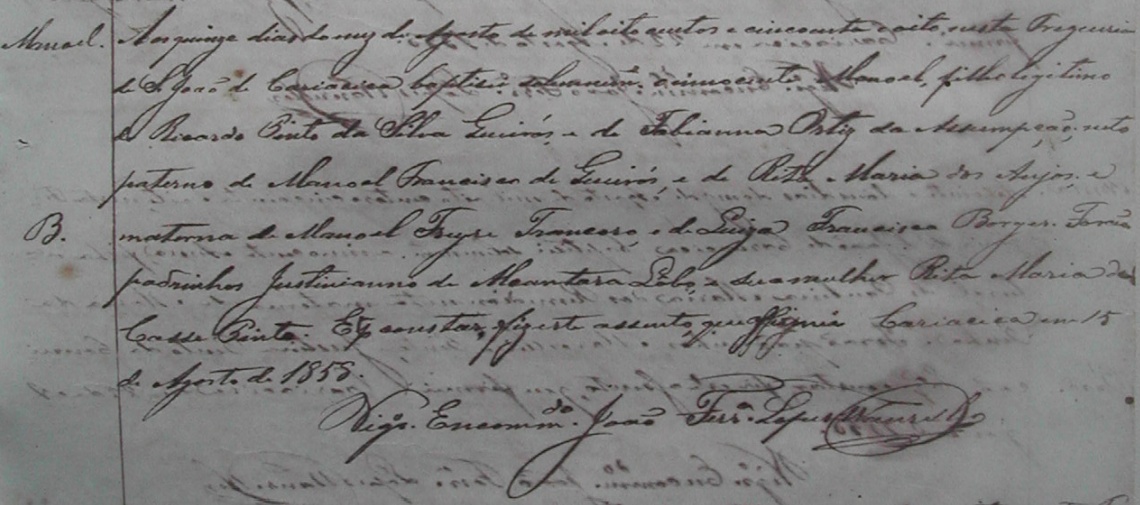 Manoel. Aos quinze dias do mez de Agosto de mil oito centos e cincoenta e oito, nesta Freguesia
de S. João de Cariacica baptisei solemnem.e o innocente Manoel, filho legitimo
de Ricardo Pinto da Silva Queirós, e de Fabianna Ortiz da Assumpção, neto
paterno de Manoel Francisco de Queirós, e de Rita Maria dos Anjos, e
B. materno de Manoel Freyre e de Luiza Francisca Borges. Forão
padrinhos Justinianno de Alcantara Lobo, e sua mulher Rita Maria da
Pinto. E p.a constar, fiz este assento, que assignei Cariacica em 15
de Agosto de 1858.
Vigr.o Encomm.do João Ferr.a Lopes